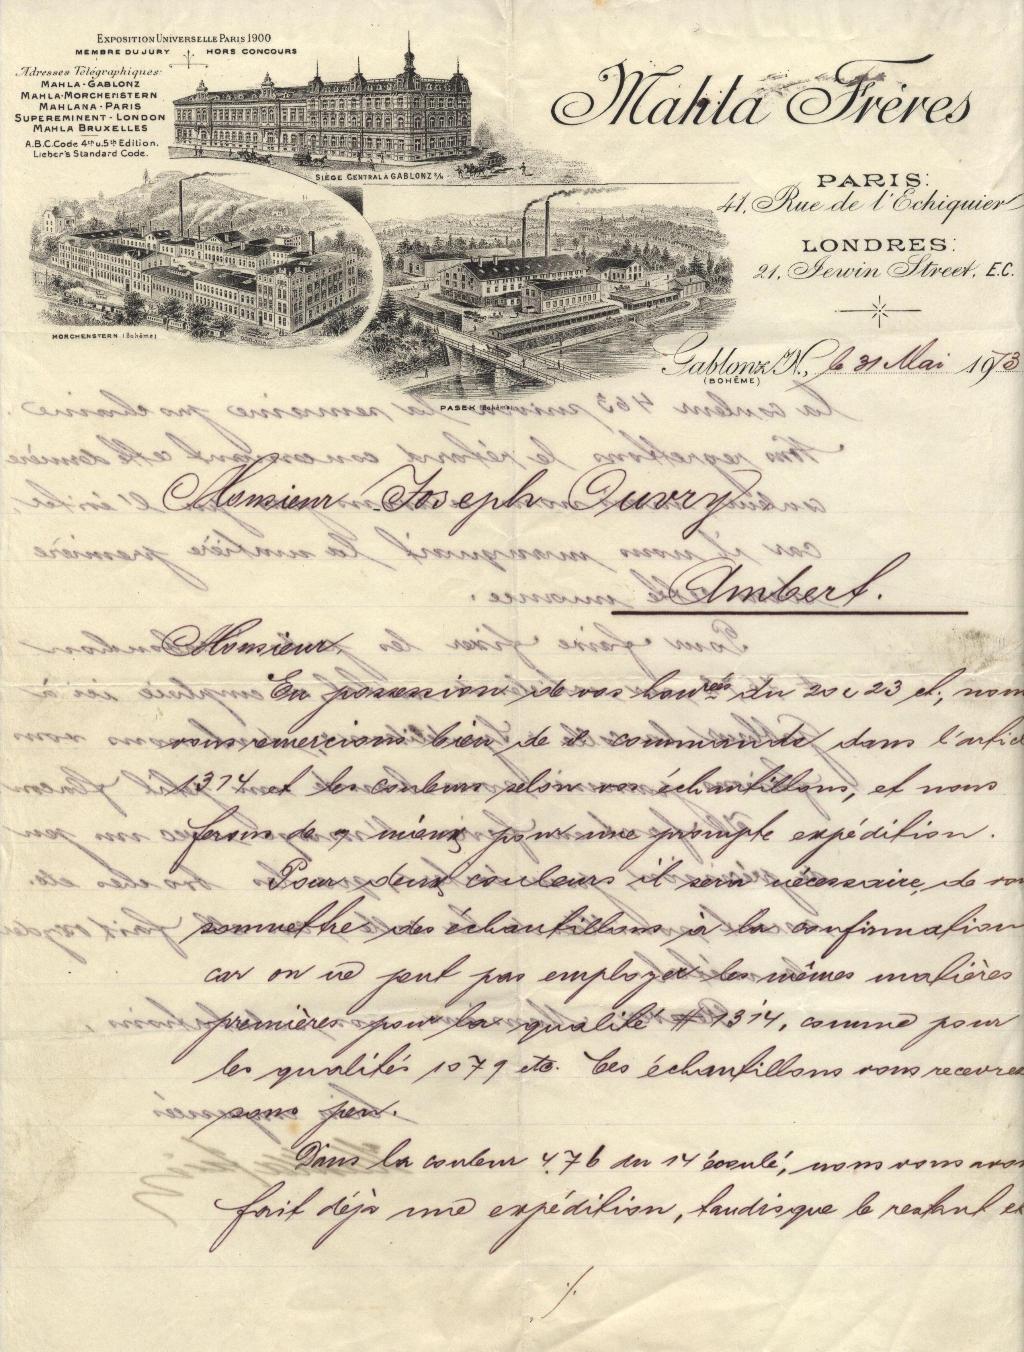 Exposition Universelle Paris 1900
MEMBRE DU JURY HORS CONCOURS
Adresses Télégraphiques:
MAHLA-GABLONZ
MAHLA-MORCHENSTERN
MAHLANA-PARIS
SUPEREMINENT-LONDON
MAHLA BRUXELLES
A.B.C. Code 4th u. 5th Edition.
Lieber's Standard Code.
SIÈGE CENTRAL À GABLONZ a/n
Mahla Frères
PARIS:
41, Rue de l'Echiquier
LONDRES:
21, Jewin Street, E.C.
MORCHENSTERN (Bohême)
PASEK (Bohême)
Gablonz a/N., le 31 Mai 1913
(BOHÊME)
Monsieur Joseph Ouvry
Ambert.
Monsieur
En possession de vos hon.rées du 20 & 23 ct, nous
vous remercions bien de commande dans l'artic
1314 et les couleurs selon vos échantillons, et nous
ferons de mieux pour une prompte expédition.
Pour deux couleurs il sera nécessaire, de vou
soumettre des échantillons à la confirmation
car on ne peut pas employer les mêmes matières
premières pour la qualité # 1314, comme pour
les qualités 1079 etc. Ces échantillons vous recevrez
sous peu.
Dans la couleur 476 du 14 écoulé, nous vous avons
fait déjà une expédition, tandisque le restant e
./.